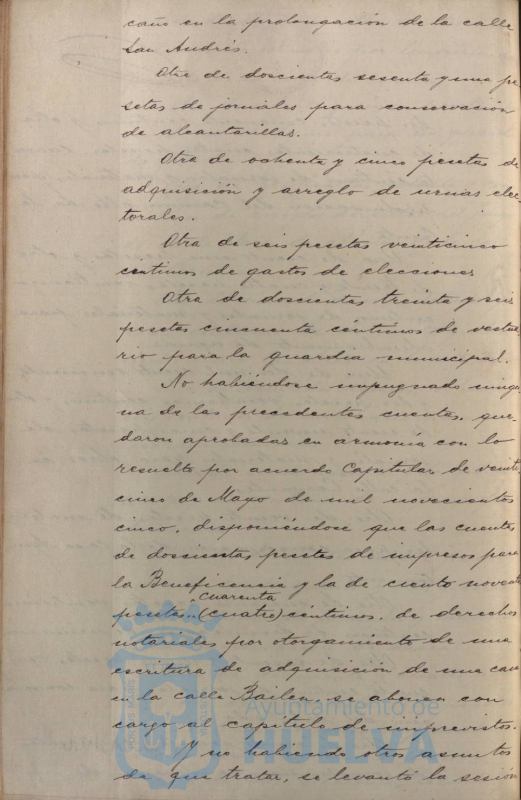 caño en la prolongación de la calle
San Andrés.
Otra de doscientas sesenta y una pe
setas de jornales para conservación
de alcantarillas.
Otra de ochenta y cinco pesetas de
adquisición y arreglo de urnas elec-
torales.
Otra de seis pesetas veinticinco
céntimos de gastos de elecciones
Otra de doscientas treinta y seis
pesetas cincuenta céntimos de vestua
rio para la guardia municipal.
No habiéndose impugnado ningu
na de las precedentes cuentas, que-
daron aprobadas en armonía con lo
resuelto por acuerdo Capitular de veinti
cinco de Mayo de mil novecientos
cinco, disponiéndose que las cuentas
de doscientas pesetas de impresos para
la Beneficencia y la de ciento noventa
cuarenta
pesetas (cuatro) céntimos, de derechos
notariales por otorgamiento de una
escritura de adquisición de una casa
en la calle Bailen, se abonen con
cargo al capítulo de imprevistos.
Y no habiendo otros asuntos
de que tratar, se levantó la sesión
Ayuntamiento de
HUELVA